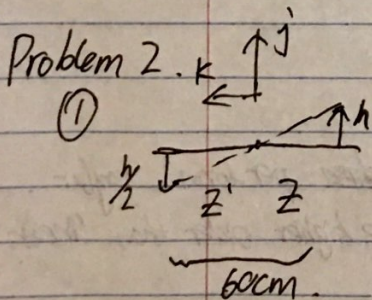 Problem 2.
k
j
①
h
h/2
z' z
60cm